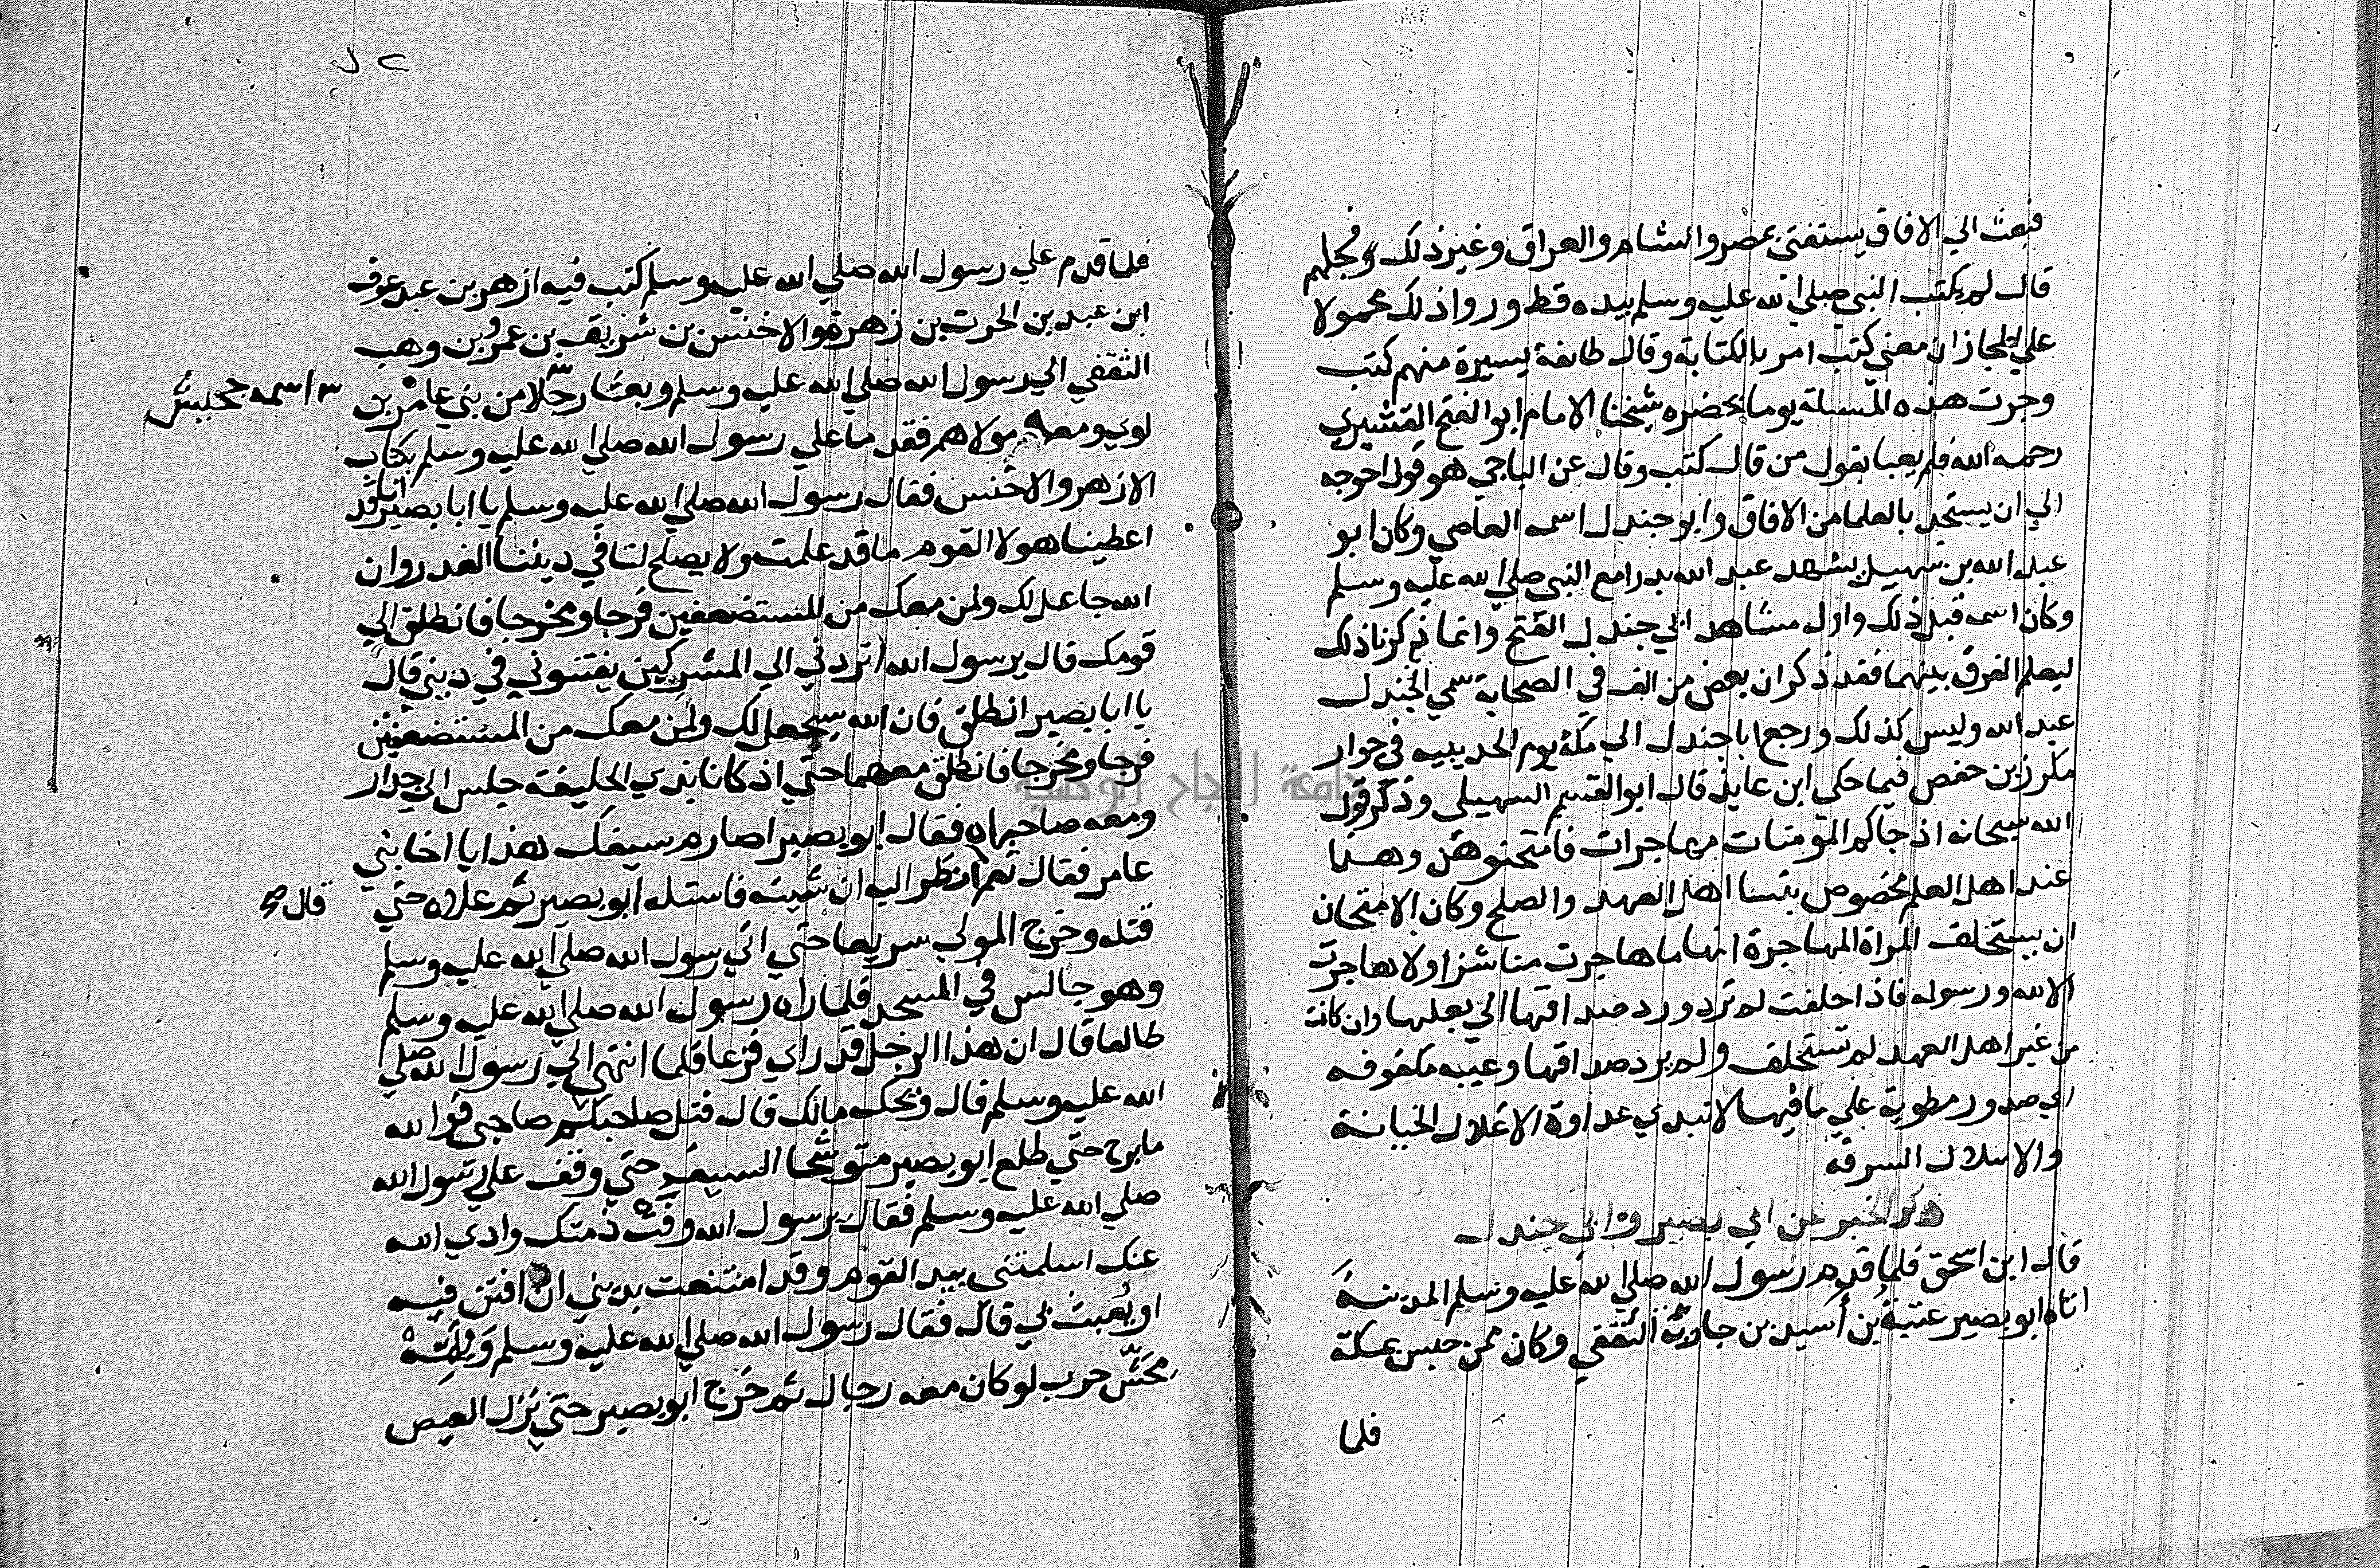 فبعث الي الافاق يستفتي بمصر والشام والعراق وغير ذلك فجلهم
قال لم يكتب النبي صلي الله عليه وسلم بيده قط ورواذلك محمولا
علي المجاز ان معني كتب امر بالكتابة وقال طائفة يسيرة منهم كتب
وجرت هذه المسئلة يوما بحضرة شيخنا الامام ابو الفتح القشيري
رحمه الله فلم يعبا بقول من قال كتب وقال عن الباجي هو قول احوجه
الي ان يستنجد بالعلما من الافاق وابو جندل اسمه العاصي وكان ابو
عبد الله بن سهيل شهد عبد الله بدرا مع النبي صلي الله عليه وسلم
وكان اسمه قبل ذلك واول مشاهد ابي جندل الفتح وانما ذكرنا ذلك
ليعلم الفرق بينهما فقد ذكر ان بعض من الف في الصحابة سمي الجندل
عبد الله وليس كذلك ورجع ابا جندل الي مكة يوم الحديبيه في جوار
مكرز بن حفص فيما حكي ابن عايذ قال ابو القسم السهيلي وذكر قول
الله سبحانه اذ جاكم المؤمنات مهاجرات فامتحنوهن وهذا
عند اهل العلم مخصوص بنسا اهل العهد والصلح وكان الامتحان
ان يستحلف المراة المهاجرة انها ما هاجرت مناشزا ولا هاجرت
الا لله ورسوله فاذا حلفت لم ترد ورد صداقها الي بعلها وان كانت
من غير اهل العهد لم تستحلف ولم يرد صداقها وعيبه مكفوفه
اي صدور مطوية علي ما فيها لا تبدي عداوة الاغلال الخيانة
والاسلال السرقه
ذكر الخبر عن ابي بصير وابي جندل
قال ابن اسحق فلما قدم رسول الله صلي الله عليه وسلم المدينة
اتاه ابو بصير عتبة بن أسيد بن جارية الثقفي وكان ممن حبس بمكة
فلما
فلما قدم علي رسول الله صلي الله عليه وسلم كتب فيه ازهر بن عبد عوف
ابن عبد بن الحرث بن زهرة والاخنس بن شريق بن عمرو بن وهب
الثقفي الي رسول الله صلي الله عليه وسلم وبعثا رجلا من بني عامر بن
اسمه جحيش
لوي ومعه مولاهم فقدما علي رسول الله صلي الله عليه وسلم بكتاب
الازهر والاخنس فقال رسول الله صلي الله عليه وسلم يا ابا بصير انا قد
اعطينا هولا القوم ما قد علمت ولا يصلح لنا في ديننا الغدر وان
الله جاعل لك ولمن معك من المستضعفين فرجا ومخرجا فانطلق الي
قومك قال يرسول الله اتردني الي المشركين يفتنوني في ديني قال
يا ابا بصير انطلق فان الله سيجعل لك ولمن معك من المستضعفين
فرجا ومخرجا فانطلق معهما حتي اذ كانا بذي الحليفة جلس الي جدار
ومعه صاحباه فقال ابو بصير اصارم سيفك هذا يا اخا بني
عامر فقال نعم انظر اليه ان شيت فاستله ابو بصير ثم علاه حتي
قال
قتله وخرج المولي سريعا حتي اتي رسول الله صلي الله عليه وسلم
وهو جالس في المسجد فلما راه رسول الله صلي الله عليه وسلم
طالعا قال ان هذا الرجل قد راي فزعا فلما انتهي الي رسول الله صلي
الله عليه وسلم قال ويحك مالك قال قتل صاحبكم صاحبي فوالله
ما برح حتي طلع ابو بصير متوشحا السيف حتي وقف علي رسول الله
صلي الله عليه وسلم فقال يرسول الله وفت ذمتك وادي الله
عنك اسلمتني بيد القوم وقد امتنعت بديني ان افتن فيه
او يعبث بي قال فقال رسول الله صلي الله عليه وسلم ويل امه
محش حرب لو كان معه رجال ثم خرج ابو بصير حتي نزل العيص
جامعة النجاح الوطنية